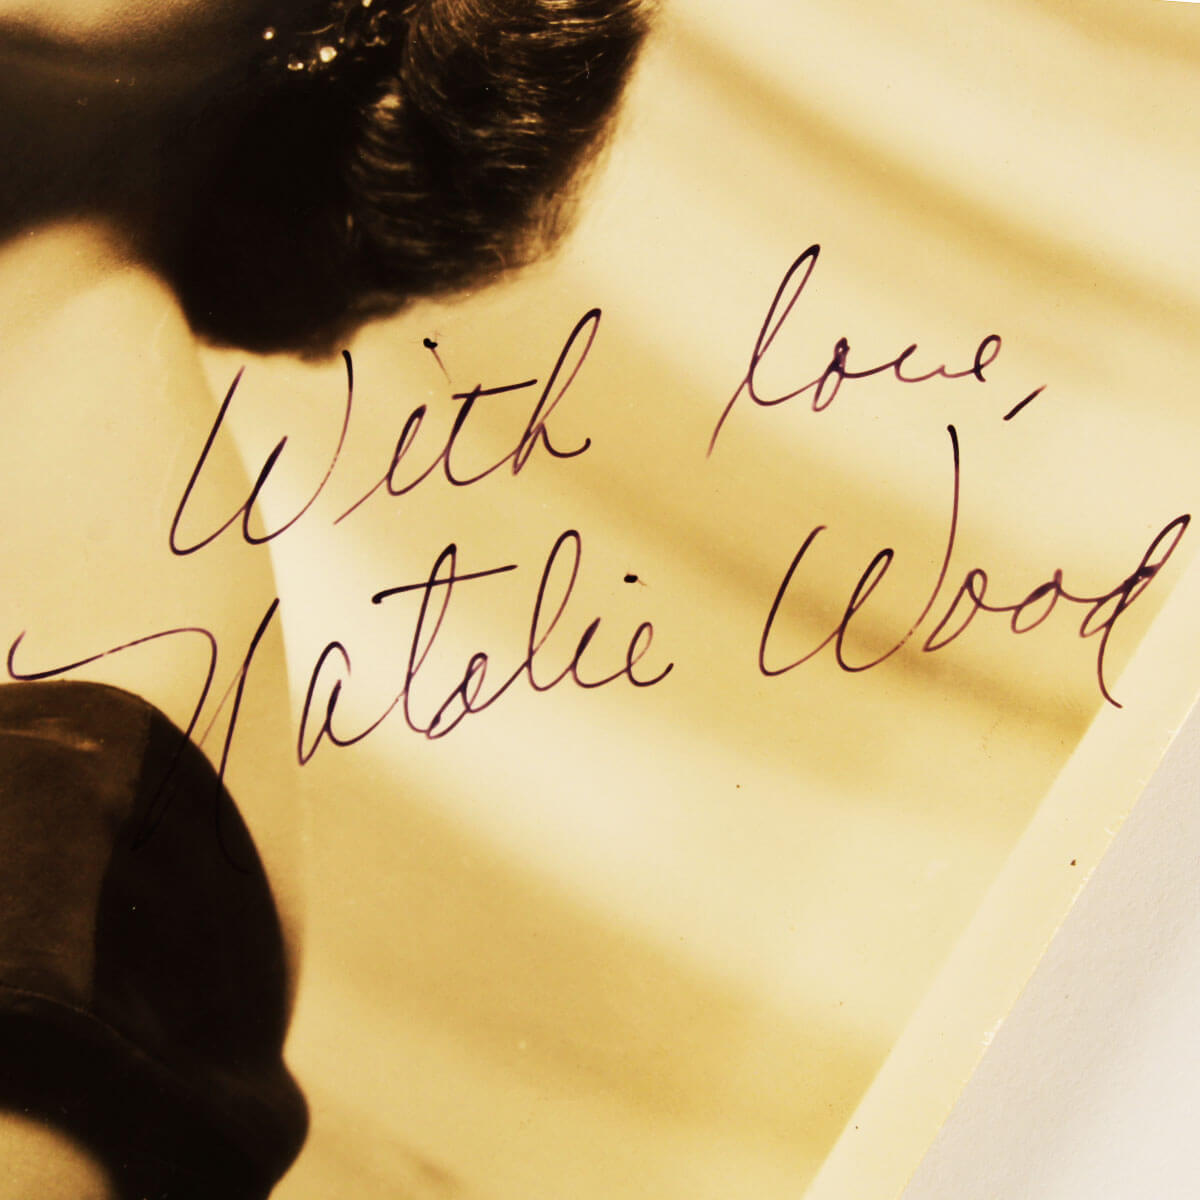 With love,
Natalie Wood